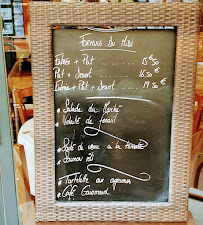 Formule Du Midi
Entrée + Plat ....... 15.50 €
Plat + Dessert ..... 16.50 €
Entrée + Plat + Dessert .... 19.50 €
Salade du Marché
Velouté de fenouil
de veau à la
Saumon rôti
Tartelette aux agrumes
Café Gourmand